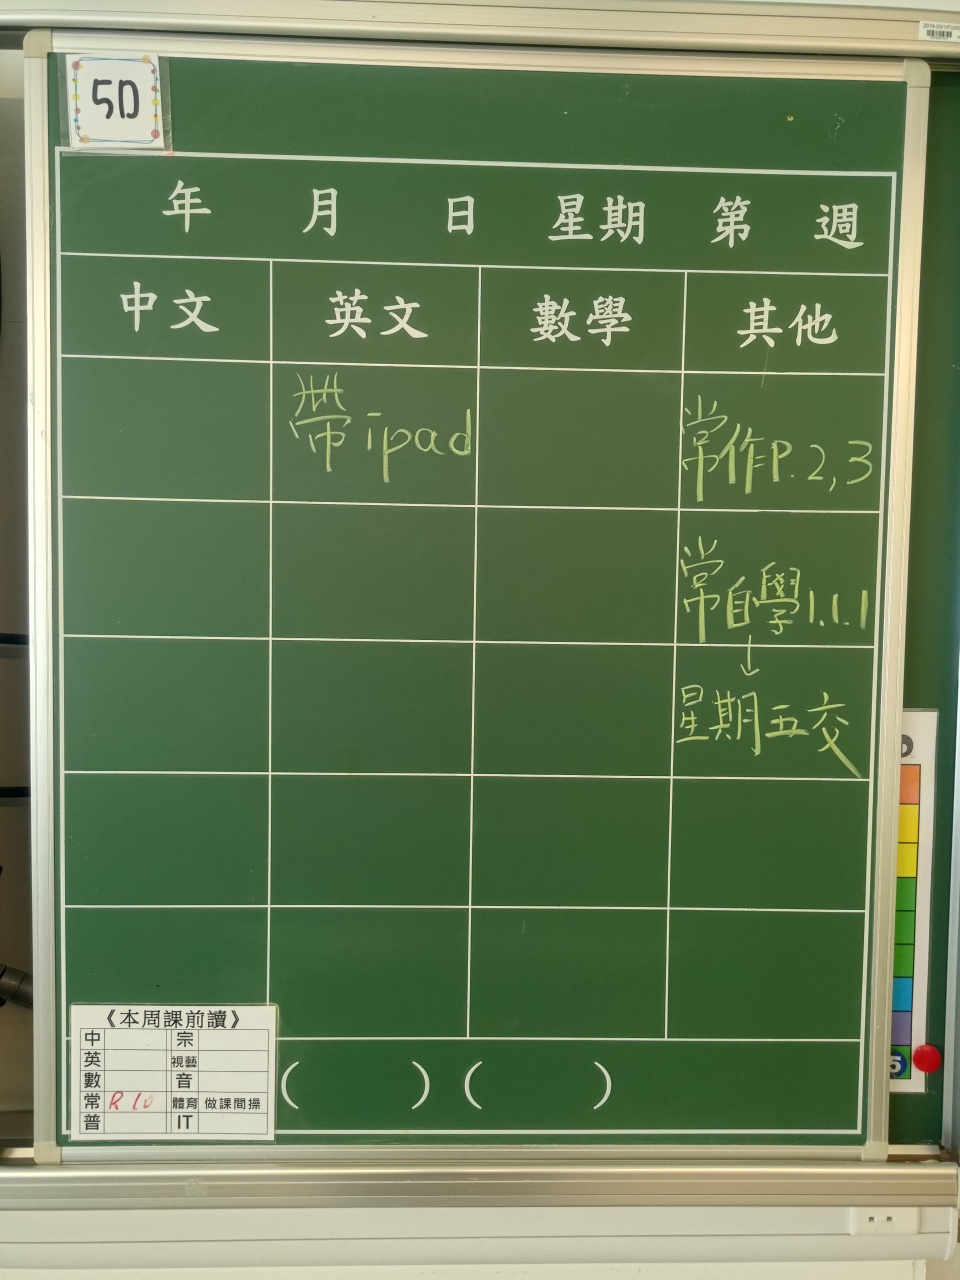 5D
年 月 日 星期 第 週
中文 英文 數學 其他
帶ipad 常作P.2,3
常自學1.1.1
↓
星期五交
《本周課前讀》
中 宗
英 視藝
數 音
常 體育 做課間操
普 IT
( ) ( )
5